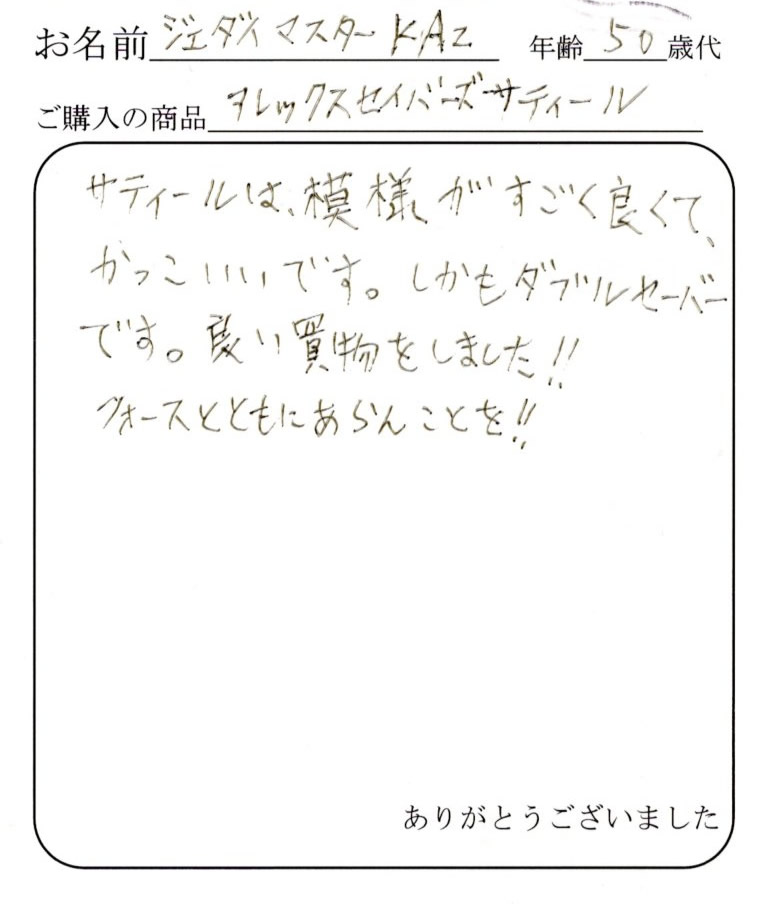 お名前 ジェダイマスターKAZ 年齢 50 歳代
ご購入の商品 ヲレックスセイバーズサティール
サティールは、模様がすごく良くて、
かっこいいです。しかもダブルセーバー
です。良い買物をしました!!
フォースとともにあらんことを!!
ありがとうございました